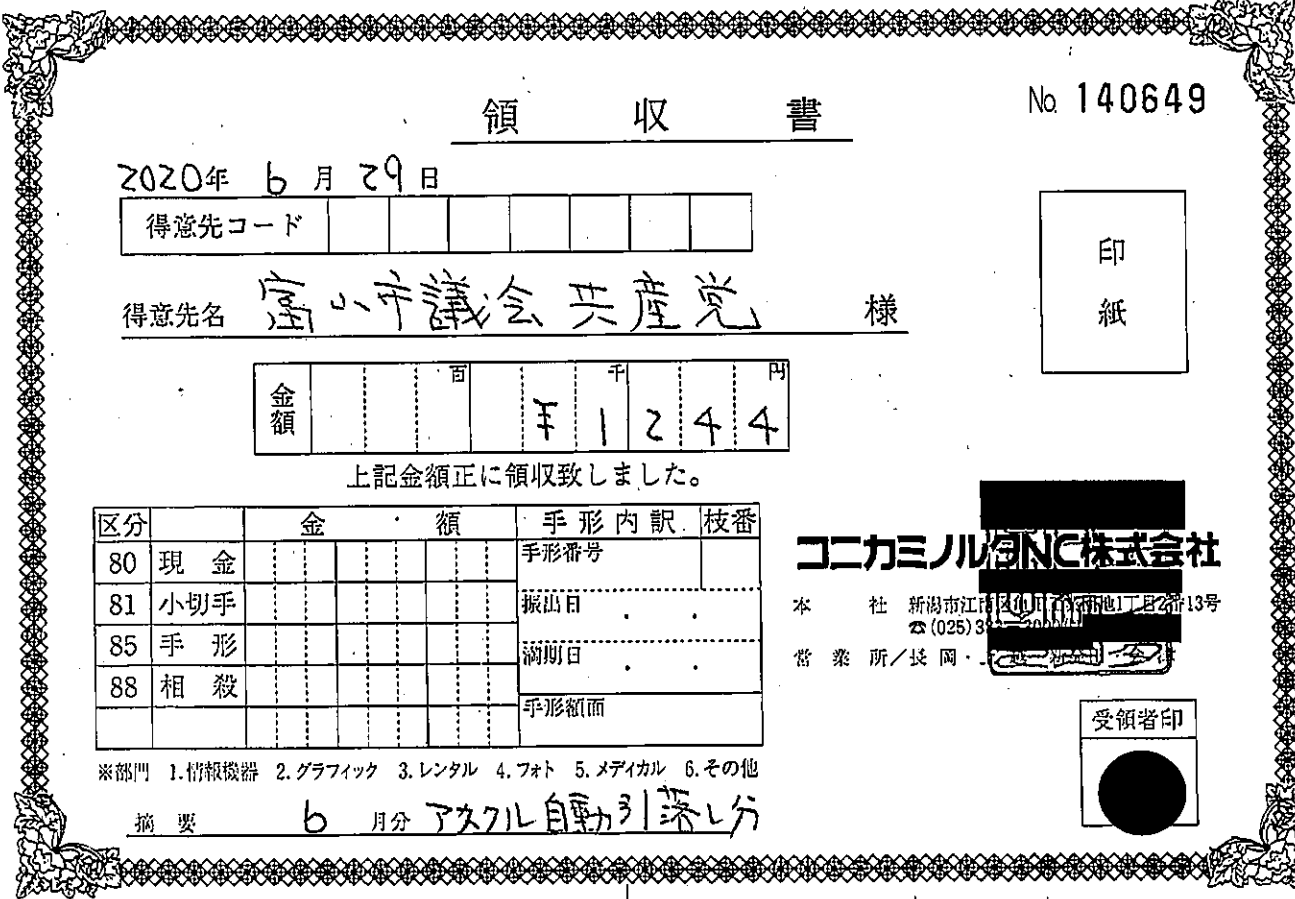 領収書
No. 140649
2020年 6月 29日
得意先コード
得意先名 富山市議会 共産党 様
印紙
金額 百 千 円
¥1244
上記金額正に領収致しました。
区分 金額 手形内訳 枝番
80 現金 手形番号
81 小切手 振出日 . .
85 手形 満期日 . .
88 相殺
手形額面
コニカミノルタNC株式会社
本社 新潟市江南区 1丁目2番13号
☎(025)
営業所/長岡・
受領者印
※部門 1.情報機器 2.グラフィック 3.レンタル 4.フォト 5.メディカル 6.その他
摘要 6月分 アスクル自動引落し分